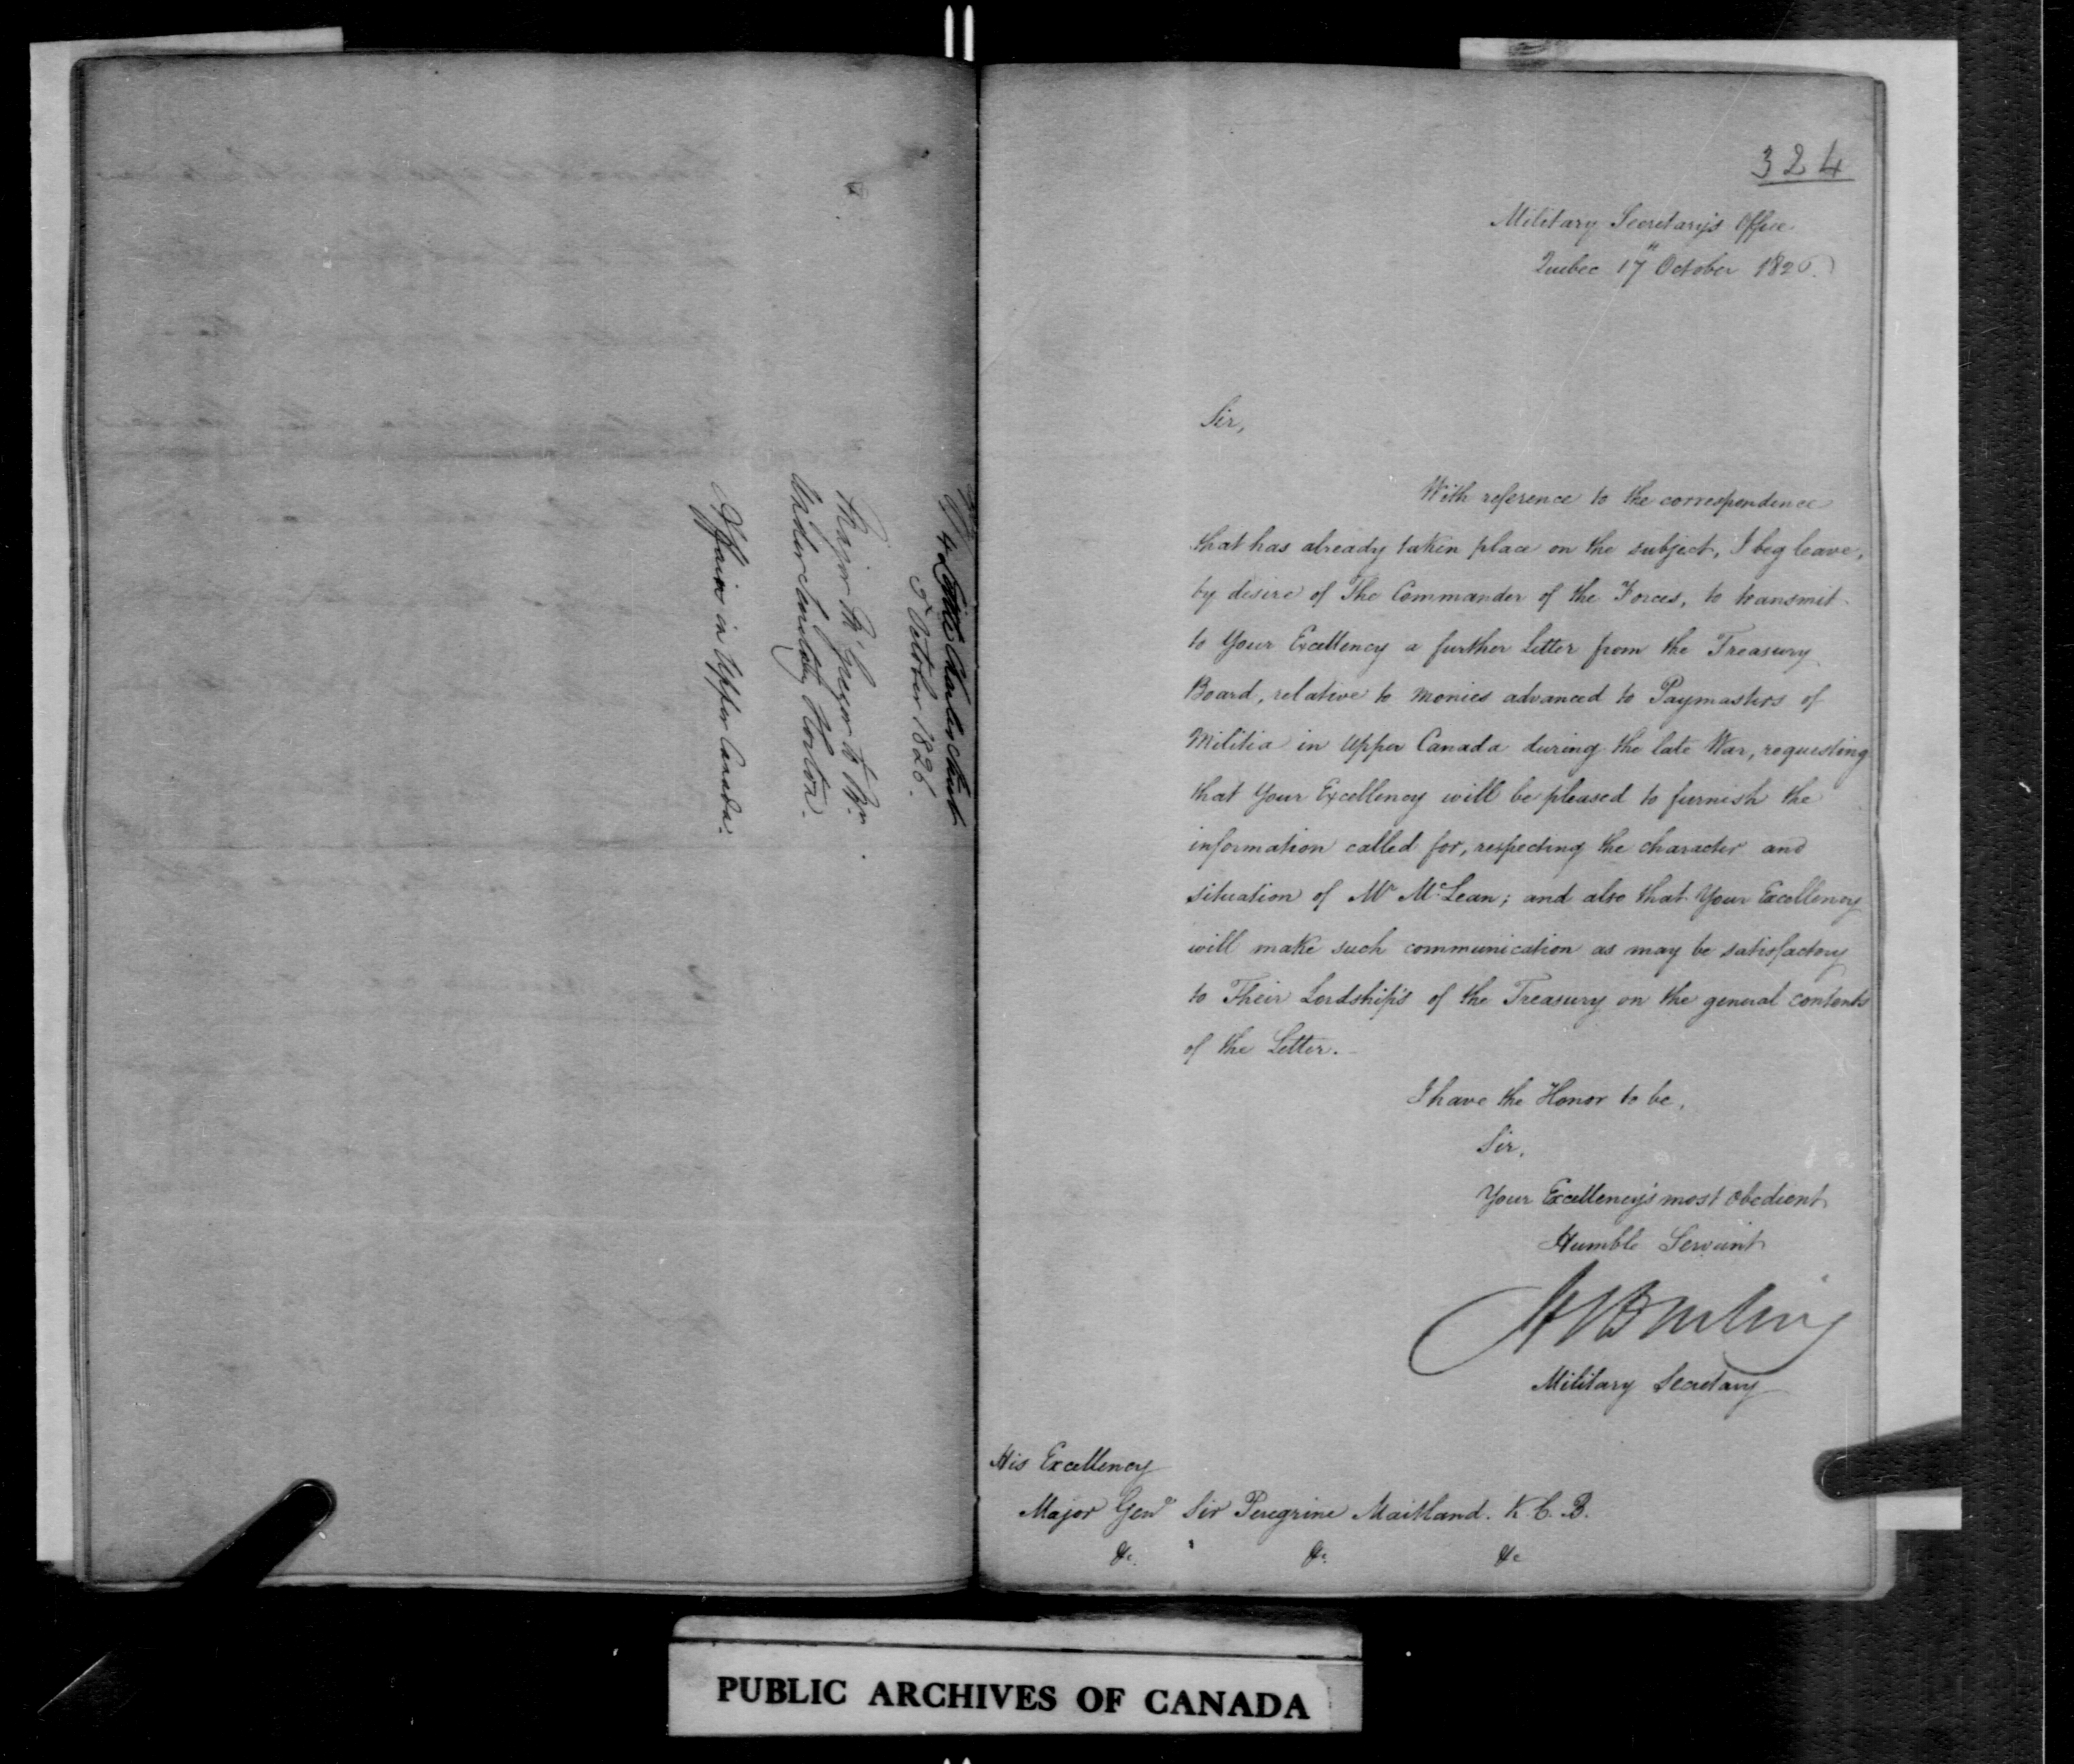 4
October 1826.
Major
Under Secretary Horton.
Affairs in Upper Canada.
324
Military Secretary's Office
Quebec 17th October 1826.
Sir,
With reference to the correspondence
that has already taken place on the subject, I beg leave,
by desire of The Commander of the Forces, to transmit
to Your Excellency a further Letter from the Treasury
Board, relative to Monies advanced to Paymasters of
Militia in Upper Canada during the late War, requesting
that Your Excellency will be pleased to furnish the
information called for, respecting the character and
situation of Mr McLean; and also that Your Excellency
will make such communication as may be satisfactory
to Their Lordships of the Treasury on the general contents
of the Letter.
I have the Honor to be,
Sir,
Your Excellency's most Obedient
Humble Servant
Military Secretary
His Excellency
Major Genl Sir Peregrine Maitland. K.C.B.
&c. &c. &c
PUBLIC ARCHIVES OF CANADA